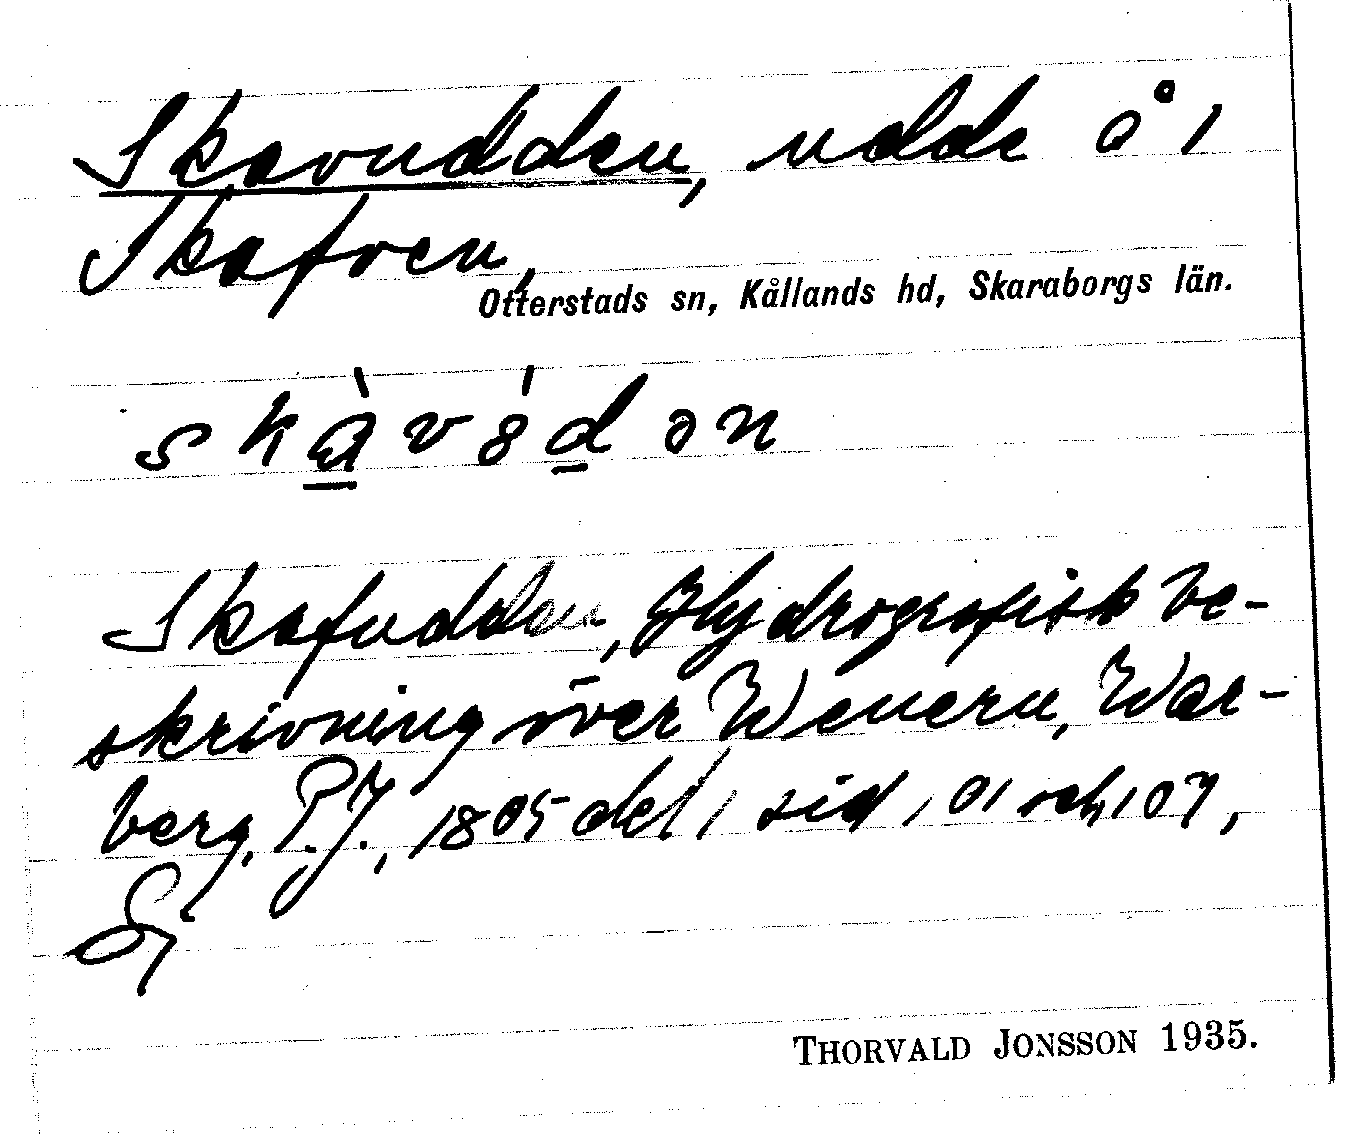 Skavudden, udde å 1
Skafven,
Otterstads sn, Kållands hd, Skaraborgs län.
skàv8́dən
Skafudden, Hydrografisk be-
skrivning över Wenern, War-
berg, P.J., 1805 del 1 sid 101 och 107,
THORVALD JONSSON 1935.